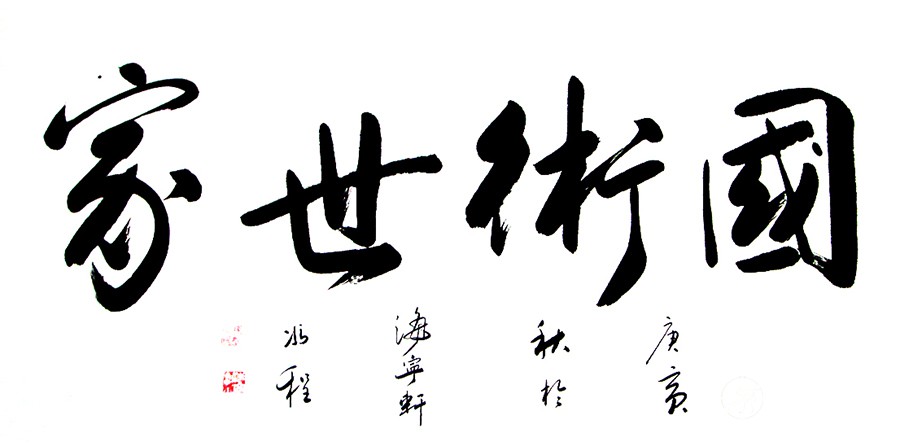 國術世家
庚寅
秋於
海寧軒
程